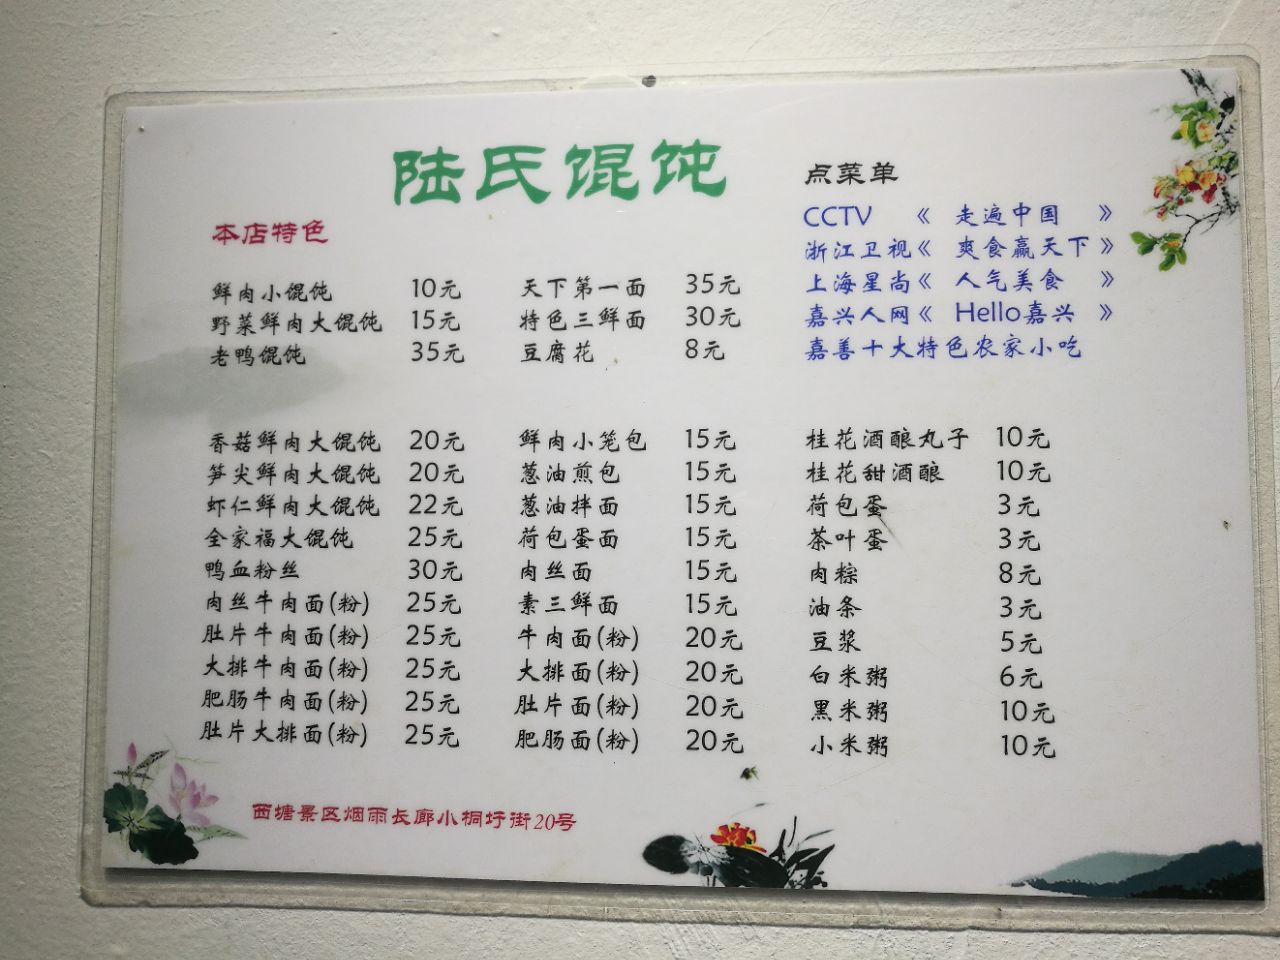 陆氏馄饨
点菜单
CCTV 《 走遍中国 》
浙江卫视《 爽食赢天下 》
上海星尚《 人气美食 》
嘉兴人网《 Hello嘉兴 》
嘉善十大特色农家小吃
本店特色
鲜肉小馄饨 10元 天下第一面 35元
野菜鲜肉大馄饨 15元 特色三鲜面 30元
老鸭馄饨 35元 豆腐花 8元
香菇鲜肉大馄饨 20元 鲜肉小笼包 15元 桂花酒酿丸子 10元
笋尖鲜肉大馄饨 20元 葱油煎包 15元 桂花甜酒酿 10元
虾仁鲜肉大馄饨 22元 葱油拌面 15元 荷包蛋 3元
全家福大馄饨 25元 荷包蛋面 15元 茶叶蛋 3元
鸭血粉丝 30元 肉丝面 15元 肉粽 8元
肉丝牛肉面(粉) 25元 素三鲜面 15元 油条 3元
肚片牛肉面(粉) 25元 牛肉面(粉) 20元 豆浆 5元
大排牛肉面(粉) 25元 大排面(粉) 20元 白米粥 6元
肥肠牛肉面(粉) 25元 肚片面(粉) 20元 黑米粥 10元
肚片大排面(粉) 25元 肥肠面(粉) 20元 小米粥 10元
西塘景区烟雨长廊小桐圩街20号